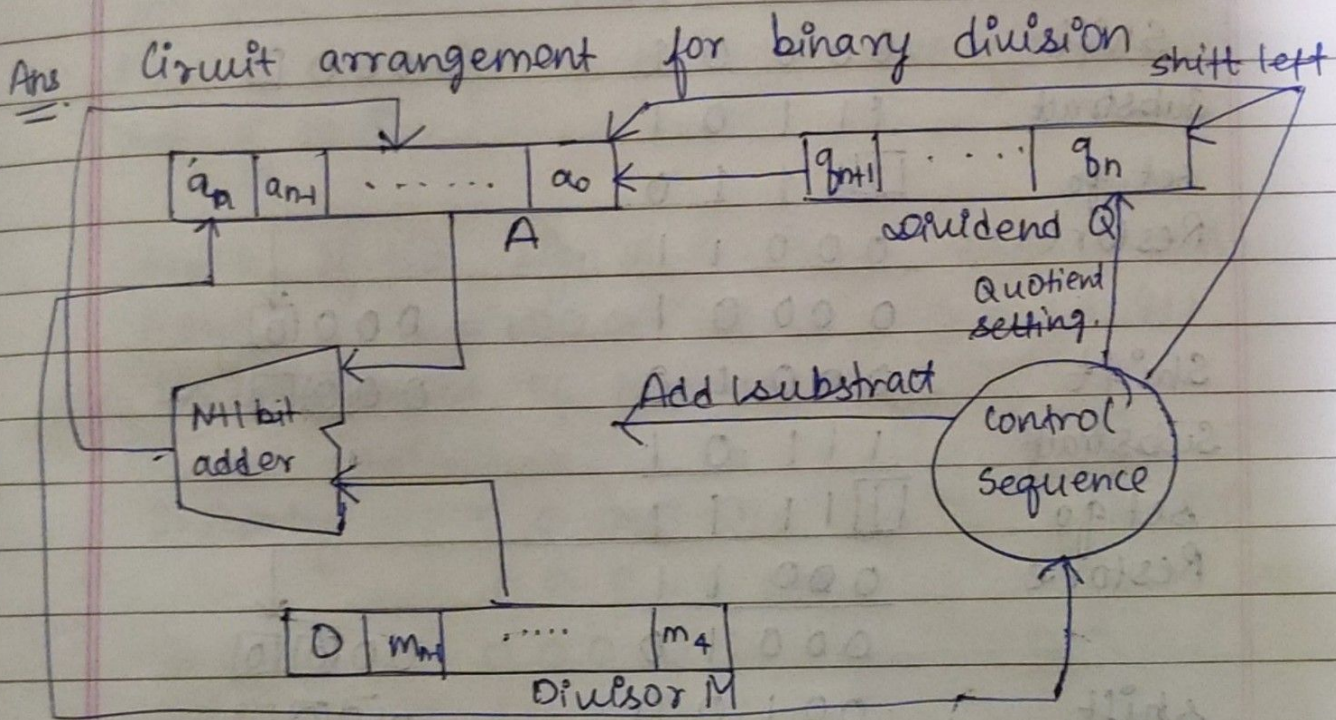 Ans. Circuit arrangement for binary division
shift left
an an-1 ....... a0
qn+1 ..... qn
A
Dividend Q
Quotient
setting.
Add / substract
N+1 bit
adder
control
sequence
0 mn-1 ..... m4
Divisor M